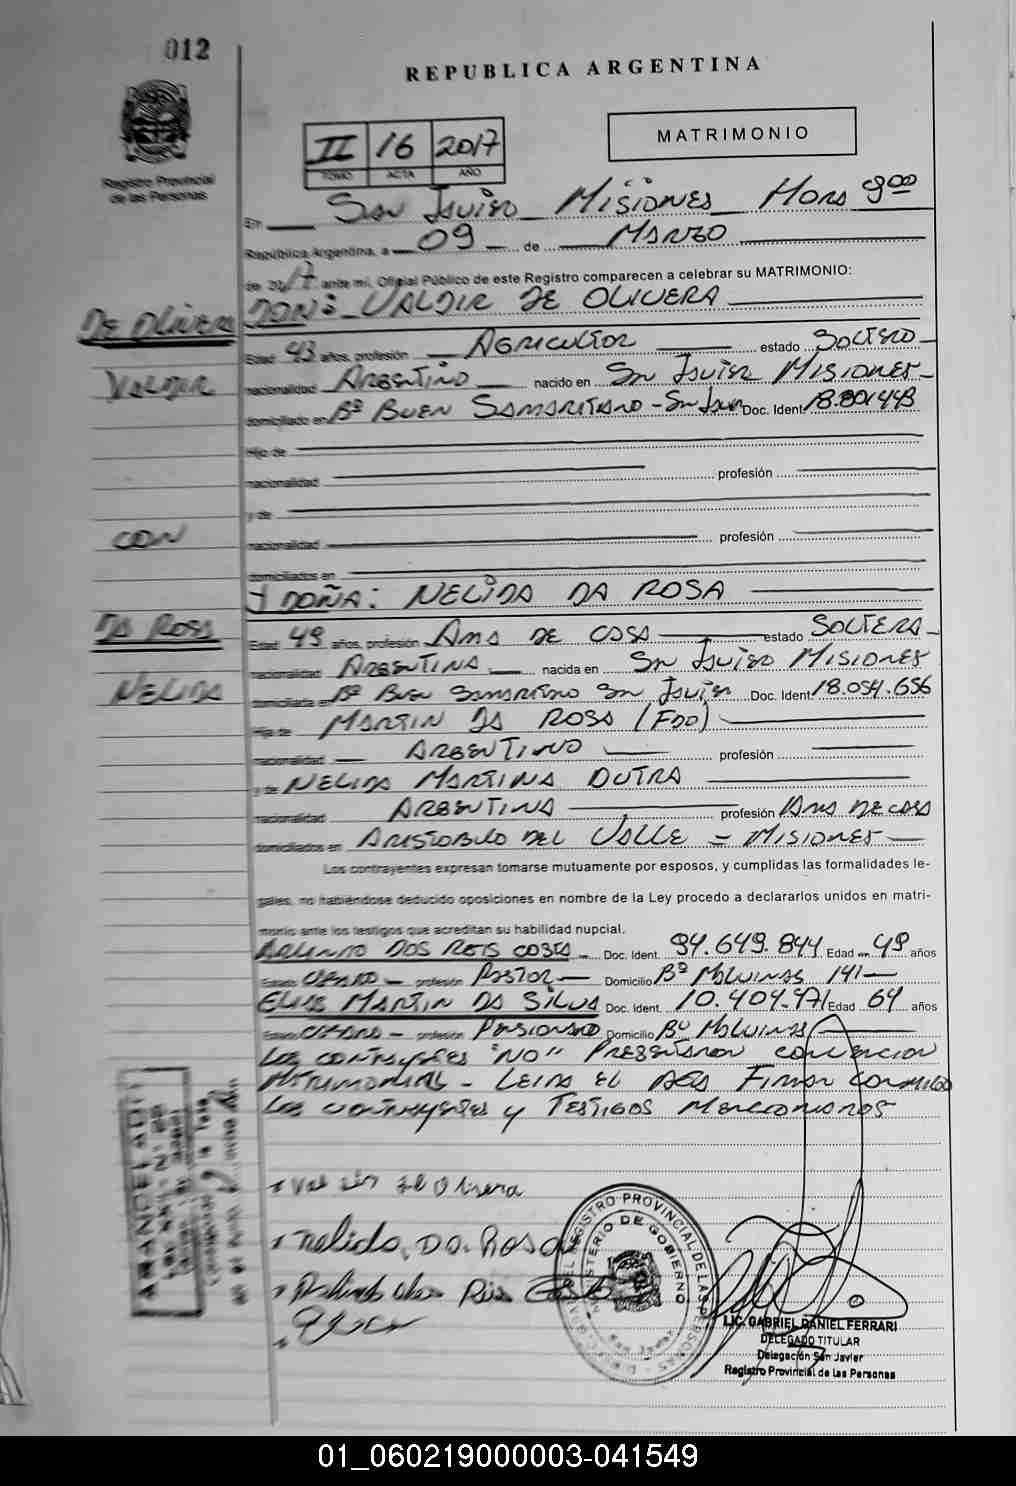 012
REPUBLICA ARGENTINA
Registro Provincial
de las Personas
II 16 2017
TOMO ACTA AÑO
MATRIMONIO
En San Javier Misiones Hora 9:00
República Argentina, a 09 de Marzo
de 2017 ante mí, Oficial Público de este Registro comparecen a celebrar su MATRIMONIO:
DE OLIVERA
VALDIR
CON
DA ROSA
NELIDA
DON: VALDIR DE OLIVERA
Edad 43 años, profesión AGRICULTOR estado SOLTERO
nacionalidad ARGENTINO nacido en San Javier MISIONES
domiciliado en Bº BUEN SAMARITANO - San Javier Doc. Ident. 18.801.443
Hijo de
nacionalidad profesión
y de
nacionalidad profesión
domiciliados en
Y DOÑA: NELIDA DA ROSA
Edad 49 años, profesión AMA DE CASA estado SOLTERA
nacionalidad ARGENTINA nacida en San Javier MISIONES
domiciliada en Bº Buen Samaritano San Javier Doc. Ident. 18.054.656
Hija de MARTIN DA ROSA (FDO)
nacionalidad ARGENTINO profesión
y de NELIDA MARTINA DUTRA
nacionalidad ARGENTINA profesión AMA DE CASA
domiciliados en ARISTOBULO DEL VALLE - MISIONES
Los contrayentes expresan tomarse mutuamente por esposos, y cumplidas las formalidades le-
gales, no habiéndose deducido oposiciones en nombre de la Ley procedo a declararlos unidos en matri-
monio ante los testigos que acreditan su habilidad nupcial.
DOS REIS COSTA Doc. Ident. 94.649.844 Edad 49 años
Estado CASADO profesión PASTOR Domicilio Bº MALVINAS 141
ELIAS MARTIN DA SILVA Doc. Ident. 10.404.971 Edad 64 años
Estado CASADO profesión PENSIONADO Domicilio Bº MALVINAS
LOS CONTRAYENTES "NO" PRESENTARON CONVENCION
MATRIMONIAL - LEIDA EL ACTA FIRMAN CONMIGO
LOS CONTRAYENTES Y TESTIGOS MENCIONADOS
Valdir de Olivera
Nelida Da Rosa
Reis Costa
REGISTRO PROVINCIAL DE LAS PERSONAS
MINISTERIO DE GOBIERNO
ARANCEL ADIT
LIC. GABRIEL DANIEL FERRARI
DELEGADO TITULAR
Delegación San Javier
Registro Provincial de las Personas
01_060219000003-041549